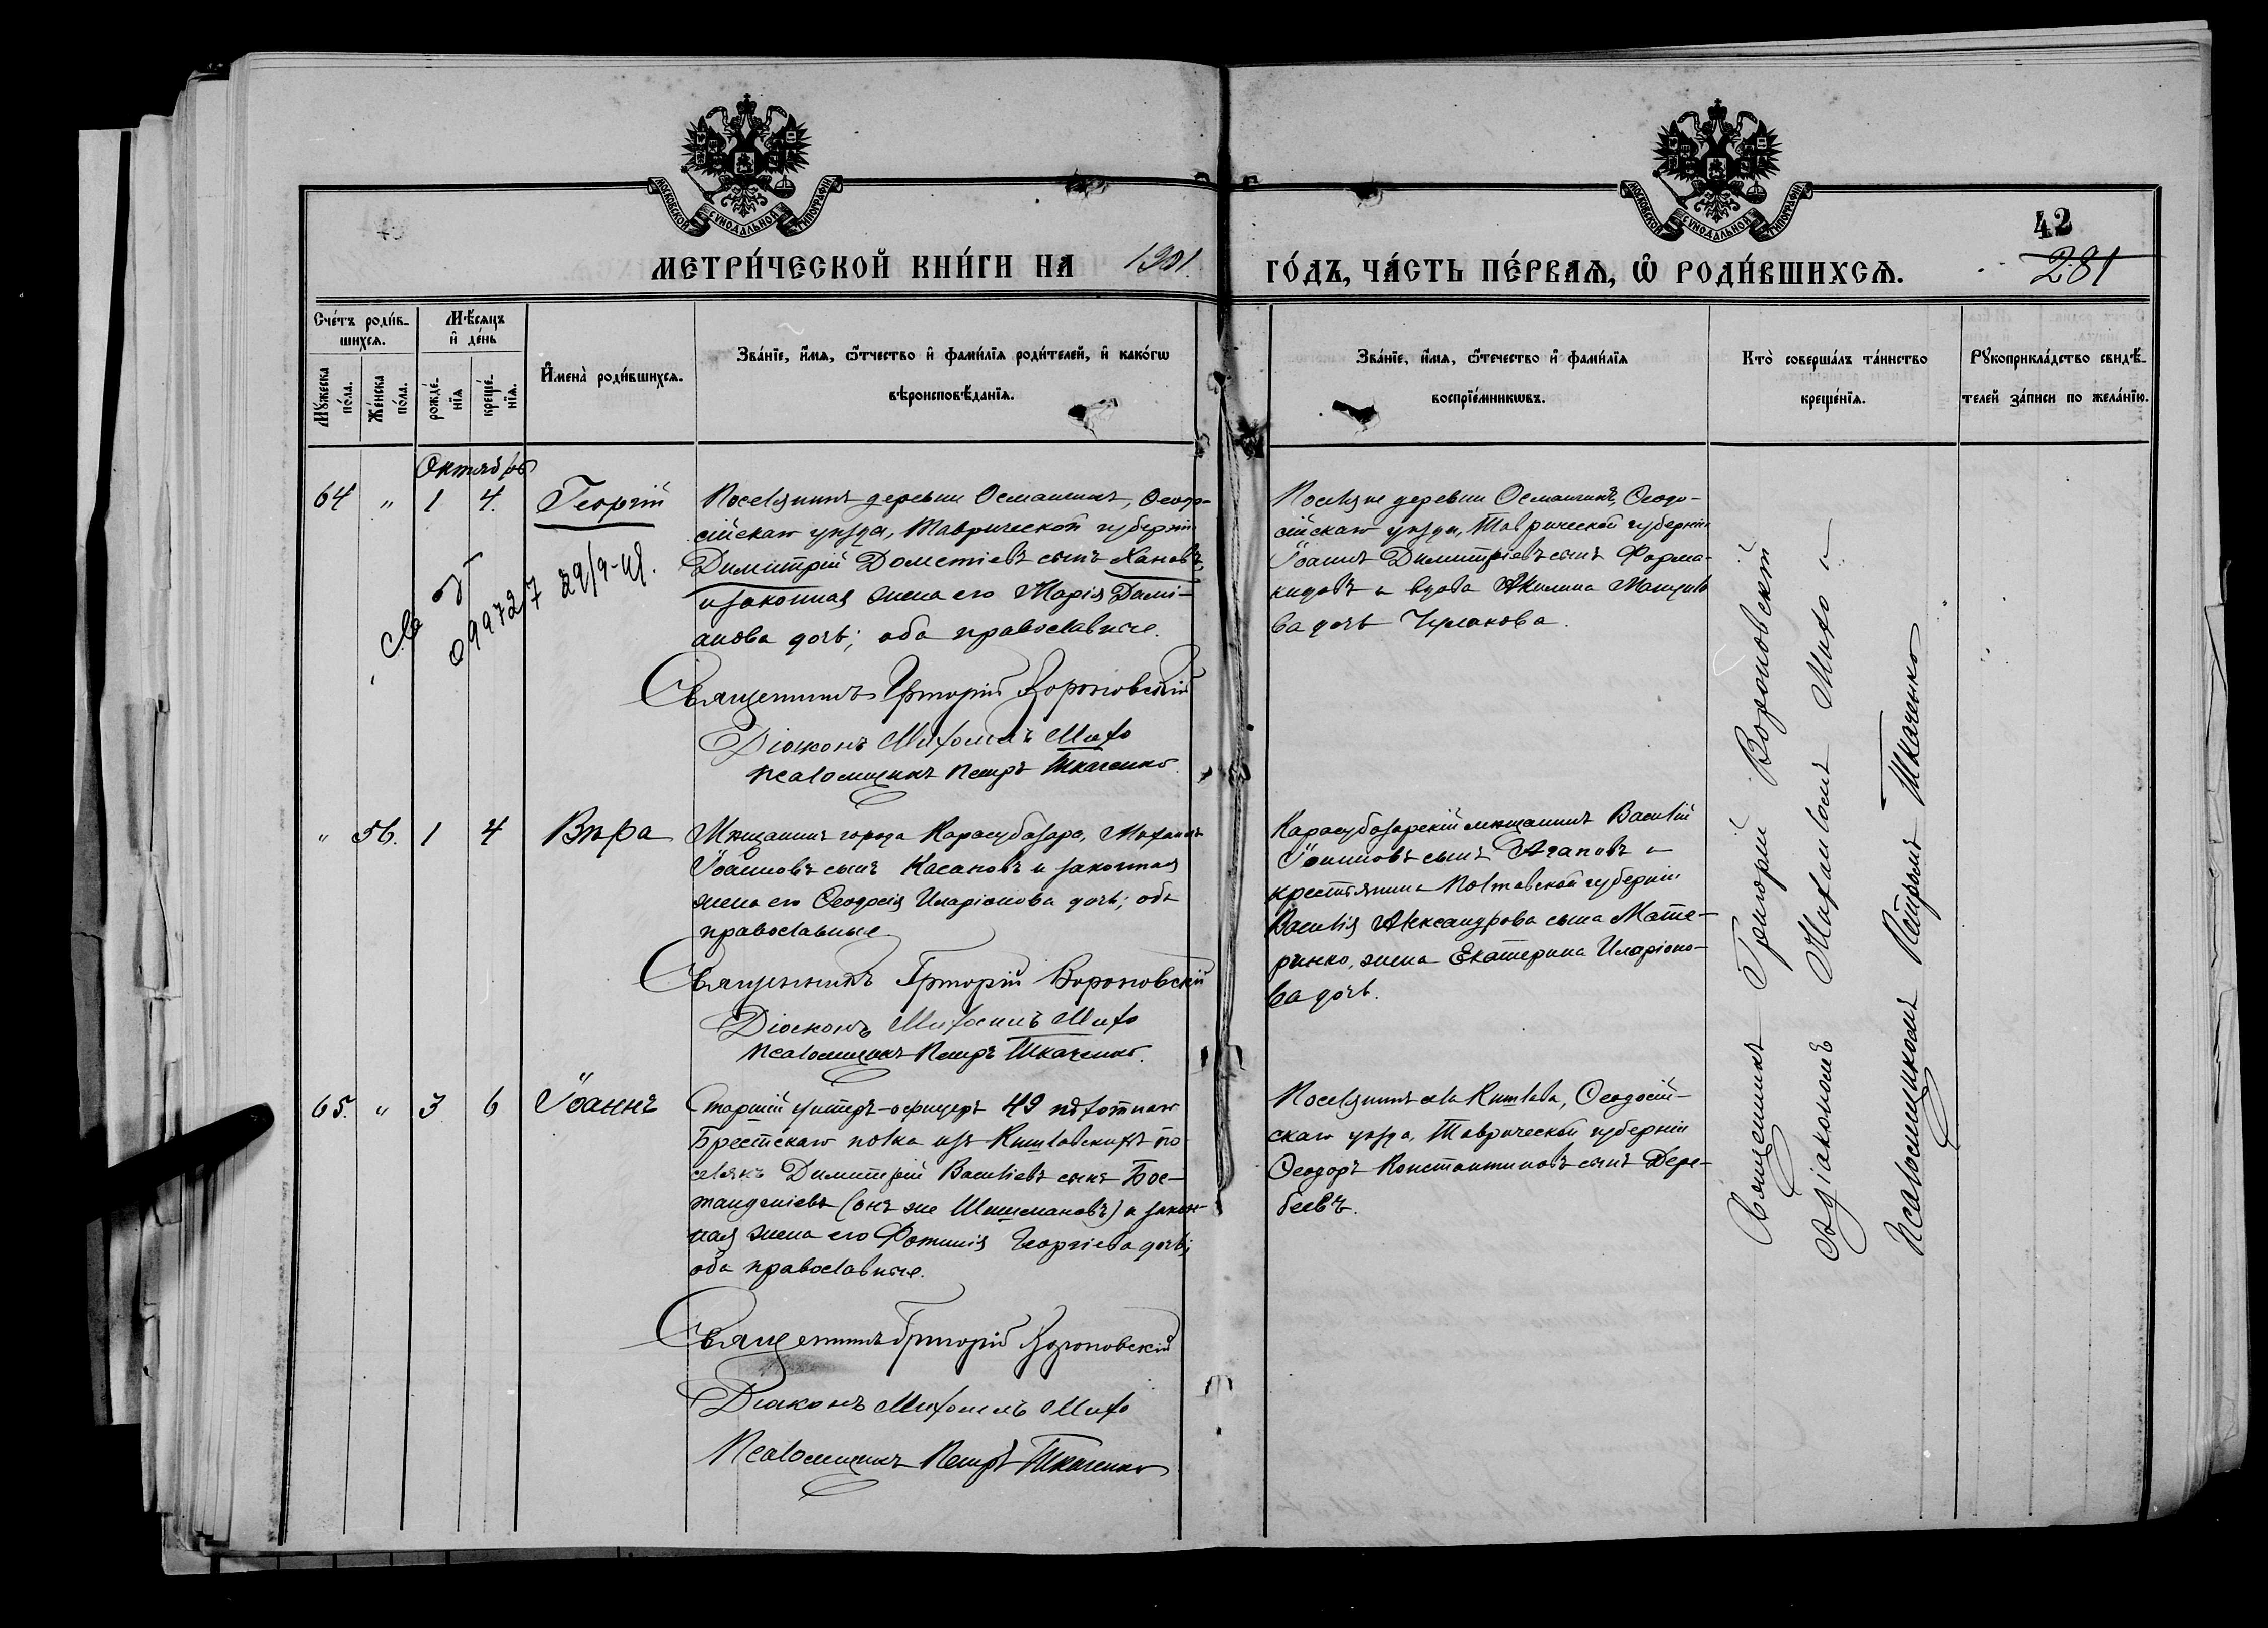 МОСКОВСКОЙ СѴНОДАЛЬНОЙ ТИПОГРАФІИ
МОСКОВСКОЙ СѴНОДАЛЬНОЙ ТИПОГРАФІИ
42
281
МЕТРИ́ЧЕСКОЙ КНИ́ГИ НА 1901
ГО́ДЪ, ЧА́СТЬ ПЕ́РВАЯ, Ѡ҆ РОДИ́ВШИХСЯ.
Сче́тъ роди́в-
шихся.
Мꙋ́жеска по́ла.
Же́нска по́ла.
Мѣ́сяцъ
и҆ де́нь
рожде́-
нїя
креще́-
нїя.
И҆мена̀ роди́вшихся.
Зва́нїе, и҆́мя, ѻ҆́тчество и҆ фами́лїя роди́телей, и҆ како́гѡ
вѣроисповѣ́данїя.
Зва́нїе, и҆́мя, ѻ҆те́чество и҆ фами́лїя
воспрїе́мникѡвъ.
Кто̀ соверша́лъ та́инство
креще́нїя.
Рꙋкоприкла́дство свидѣ́-
телей за́писи по жела́нїю.
Октябрь
64 " 1 4. Георгій
Поселянинъ деревни Османчикъ, Ѳеодо-
сійскаго уѣзда, Таврической губерніи
Димитрій Дометіевъ сынъ Хановъ
и законная жена его Марія Дамі-
анова дочь; оба православные.
099727 29/9-48.
Священникъ Григорій Вороновскій
Діаконъ Михаилъ Михо
Псаломщикъ Петръ Ткаченко.
Поселяне деревни Османчикъ, Ѳеодо-
сійскаго уѣзда, Таврической губерніи
Іоаннъ Димитріевъ сынъ Форма-
кидовъ и вдова Акилина
ва дочь
" 56. 1 4 Вѣра
Мѣщанинъ города Карасубазара, Михаилъ
Іоанновъ сынъ Касановъ и законная
жена его Ѳеодосія Иларіонова дочь; оба
православные
Священникъ Григорій Вороновскій
Діаконъ Михаилъ Михо
Псаломщикъ Петръ Ткаченко.
Карасубазарскій мѣщанинъ Василій
Іоанновъ сынъ Агаповъ и
крестьянина Полтавской губерніи
Василія Александрова сына Мате-
ринко, жена Екатерина Иларіоно-
ва дочь.
65. " 3 6 Іоаннъ
Старшій унтеръ-офицеръ 49 пѣхотнаго
Брестскаго полка изъ Кишлавскихъ по-
селянъ Димитрій Васильевъ сынъ Бос-
танджіевъ (онъ же Шишмановъ) и закон-
ная жена его Фотинія Георгіева дочь;
оба православные.
Священникъ Григорій Вороновскій
Діаконъ Михаилъ Михо
Псаломщикъ Петръ Ткаченко
Поселянинъ села Кишлава, Ѳеодосій-
скаго уѣзда, Таврической губерніи
Ѳеодоръ Константиновъ сынъ Дере-
беевъ.
Священникъ Григорій Вороновскій
съ діакономъ Михаиломъ Михо и
Псаломщикомъ Петромъ Ткаченко